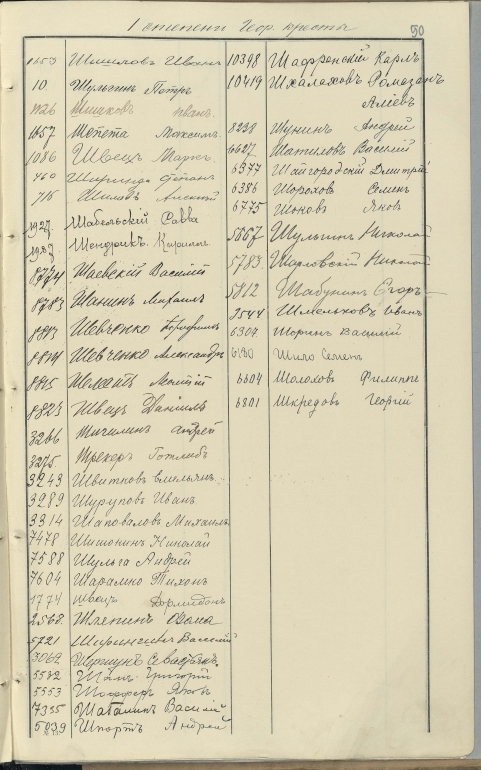 1 степени Геор. кресты
50
1453 Шишловъ Иванъ
10 Шульгинъ Петръ
Шишковъ Иванъ
1057 Шепета Максимъ
1086 Швецъ Маркъ
460 Степанъ
716 Шиловъ Алексей
1927 Шабельскій Савва
1937 Шендрикъ Кириллъ
8774 Шаевскій Василій
8783 Шанинъ Михаилъ
8813 Шевченко
8814 Шевченко Александръ
8815 Леонтій
8823 Швецъ Даніилъ
3266 Андрей
3275 Шрекеръ Готлибъ
3243 Швитковъ Емельянъ
3289 Шуруповъ Иванъ
3314 Шаповаловъ Михаилъ
7478 Шишонинъ Николай
7588 Шульга Андрей
7604 Тихонъ
1774 Швецъ Дормидонъ
2568 Шляпинъ Ѳома
5721 Василій
3062
5532 Григорій
5553 Шоффоръ Яковъ
7335 Шаталинъ Василій
5039 Шпортъ Андрей
10398 Шафренскій Карлъ
10419 Шхалаховъ Ромазанъ
Аліевъ
8238 Шунинъ Андрей
6627 Шатиловъ Василій
6377 Шайгородскій Дмитрій
6386 Шороховъ Семенъ
6775 Шоховъ Яковъ
5567 Шульгинъ Николай
5783 Шаповскій Николай
5812 Шабунинъ Егоръ
9544 Шмельковъ Иванъ
6307 Шоринъ Василій
6180 Шило Семенъ
6604 Шолоховъ Филиппъ
6801 Шкредовъ Георгій